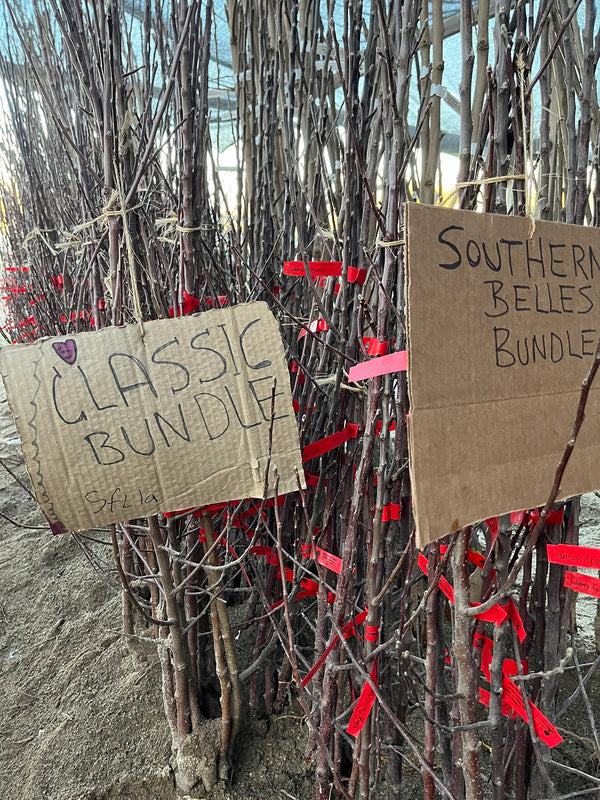 CLASSIC
BUNDLE
SfLla
SOUTHERN
BELLES
BUNDLE